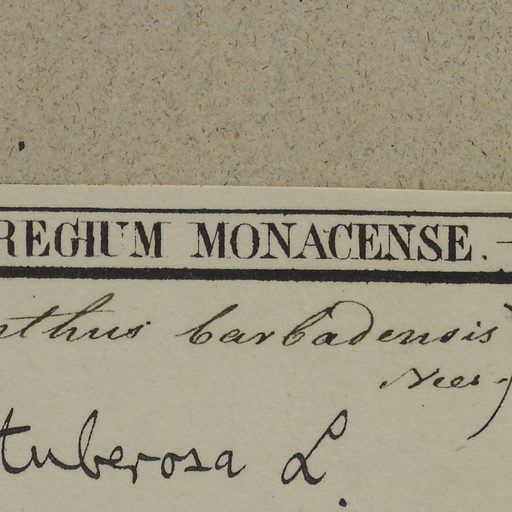 REGIUM MONACENSE. —
nthus barbadensis
Nees.)
tuberosa L.